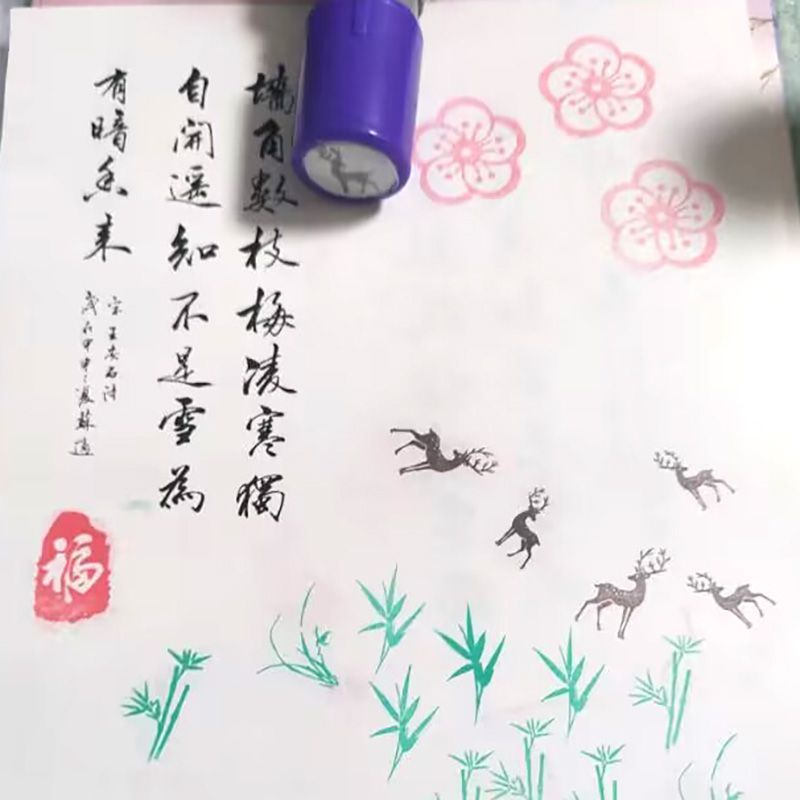 墻角数枝梅凌寒獨
自開遥知不是雪為
有暗香来
宋王安石詩
福